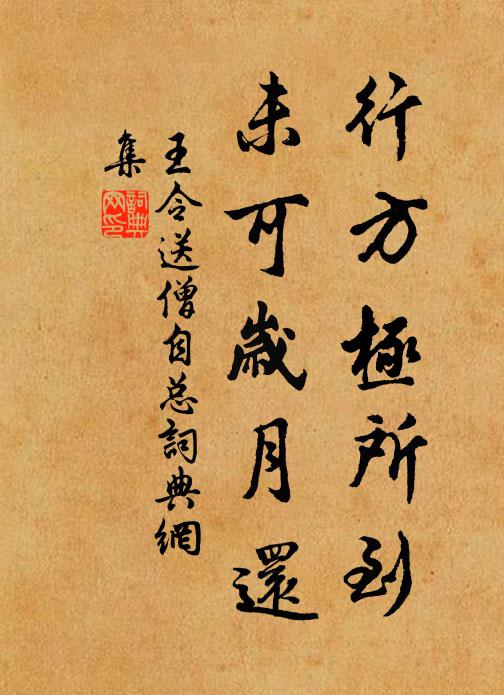 行方極所到
未可歲月還
王令送僧自总詞典網
集
詞典網印